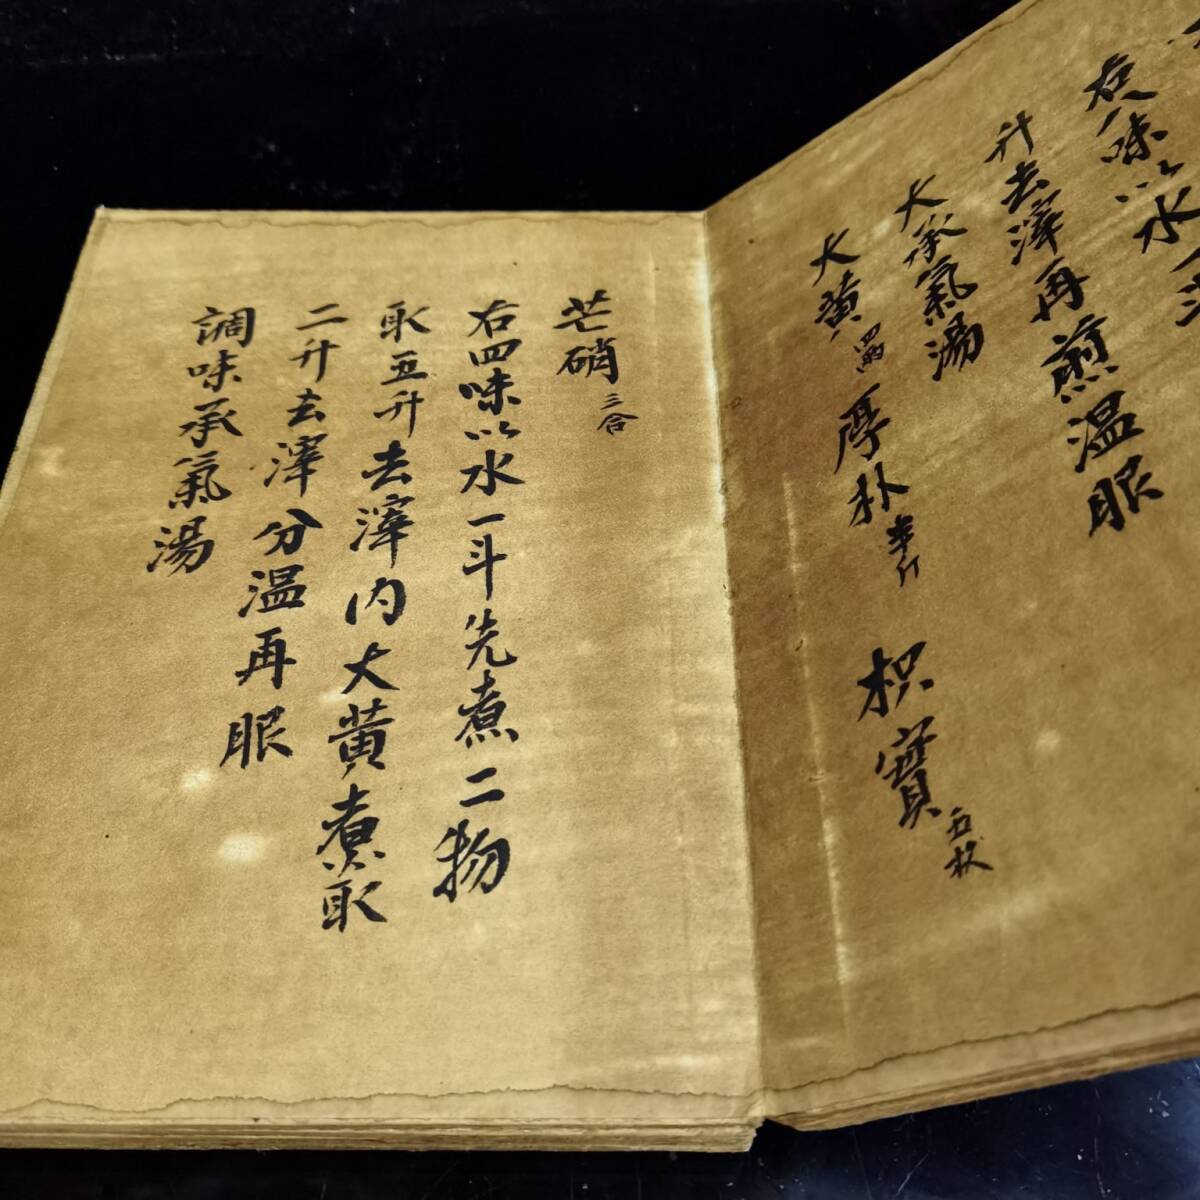 右八味以水一斗
升去滓再煎温服
大承氣湯
大黄 四兩 厚朴 半斤 枳實 五枚
芒硝 三合
右四味以水一斗先煮二物
取五升去滓内大黄煮取
二升去滓分温再服
調味承氣湯